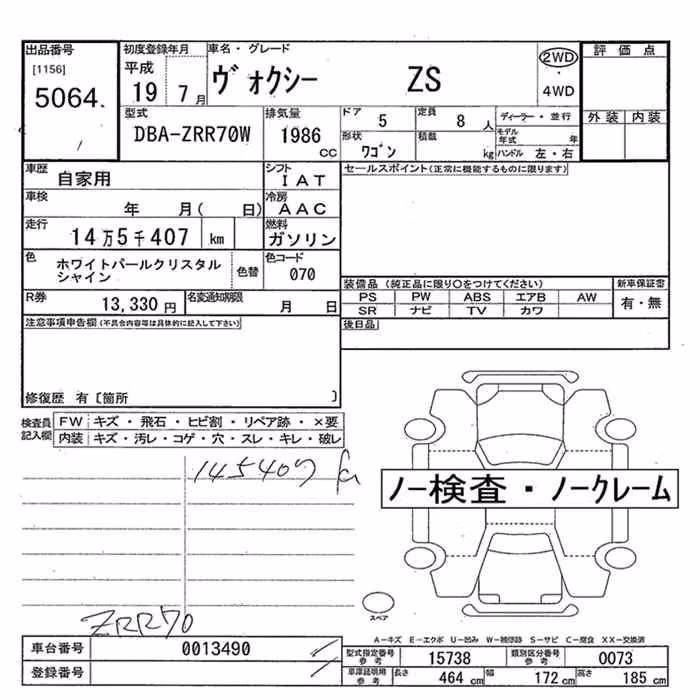 出品番号 初度登録年月 車名・グレード 評価点
[1156] 平成 ヴォクシー ZS 2WD
5064 19 7月 4WD
型式 排気量 ドア 5 定員 8人 ディーラー・並行 外装 内装
DBA-ZRR70W 1986 CC 形状 ワゴン 積載 kg モデル年式 年
ハンドル 左・右
車歴 自家用 シフト IAT セールスポイント(正常に機能するものに限ります)
車検 年 月( 日) 冷房 AAC
走行 14万5千407 km 燃料 ガソリン
色 ホワイトパールクリスタルシャイン 色替 色コード 070
装備品 (純正品に限り○をつけてください) 新車保証書
R券 13,330円 名変通知期限 月 日 PS PW ABS エアB AW 有・無
SR ナビ TV カワ
注意事項申告欄(不具合内容等は具体的に記入して下さい) 後日品
修復歴 有〔箇所 〕
検査員記入欄 FW キズ・飛石・ヒビ割・リペア跡・×要
内装 キズ・汚レ・コゲ・穴・スレ・キレ・破レ
145407
ノー検査・ノークレーム
スペア
ZRR70
A-キズ E-エクボ U-凹み W-補修跡 S-サビ C-腐食 XX-交換済
車台番号 0013490 型式指定番号 参考 15738 類別区分番号 参考 0073
登録番号 車庫証明用 参考 長さ 464 cm 幅 172 cm 高さ 185 cm